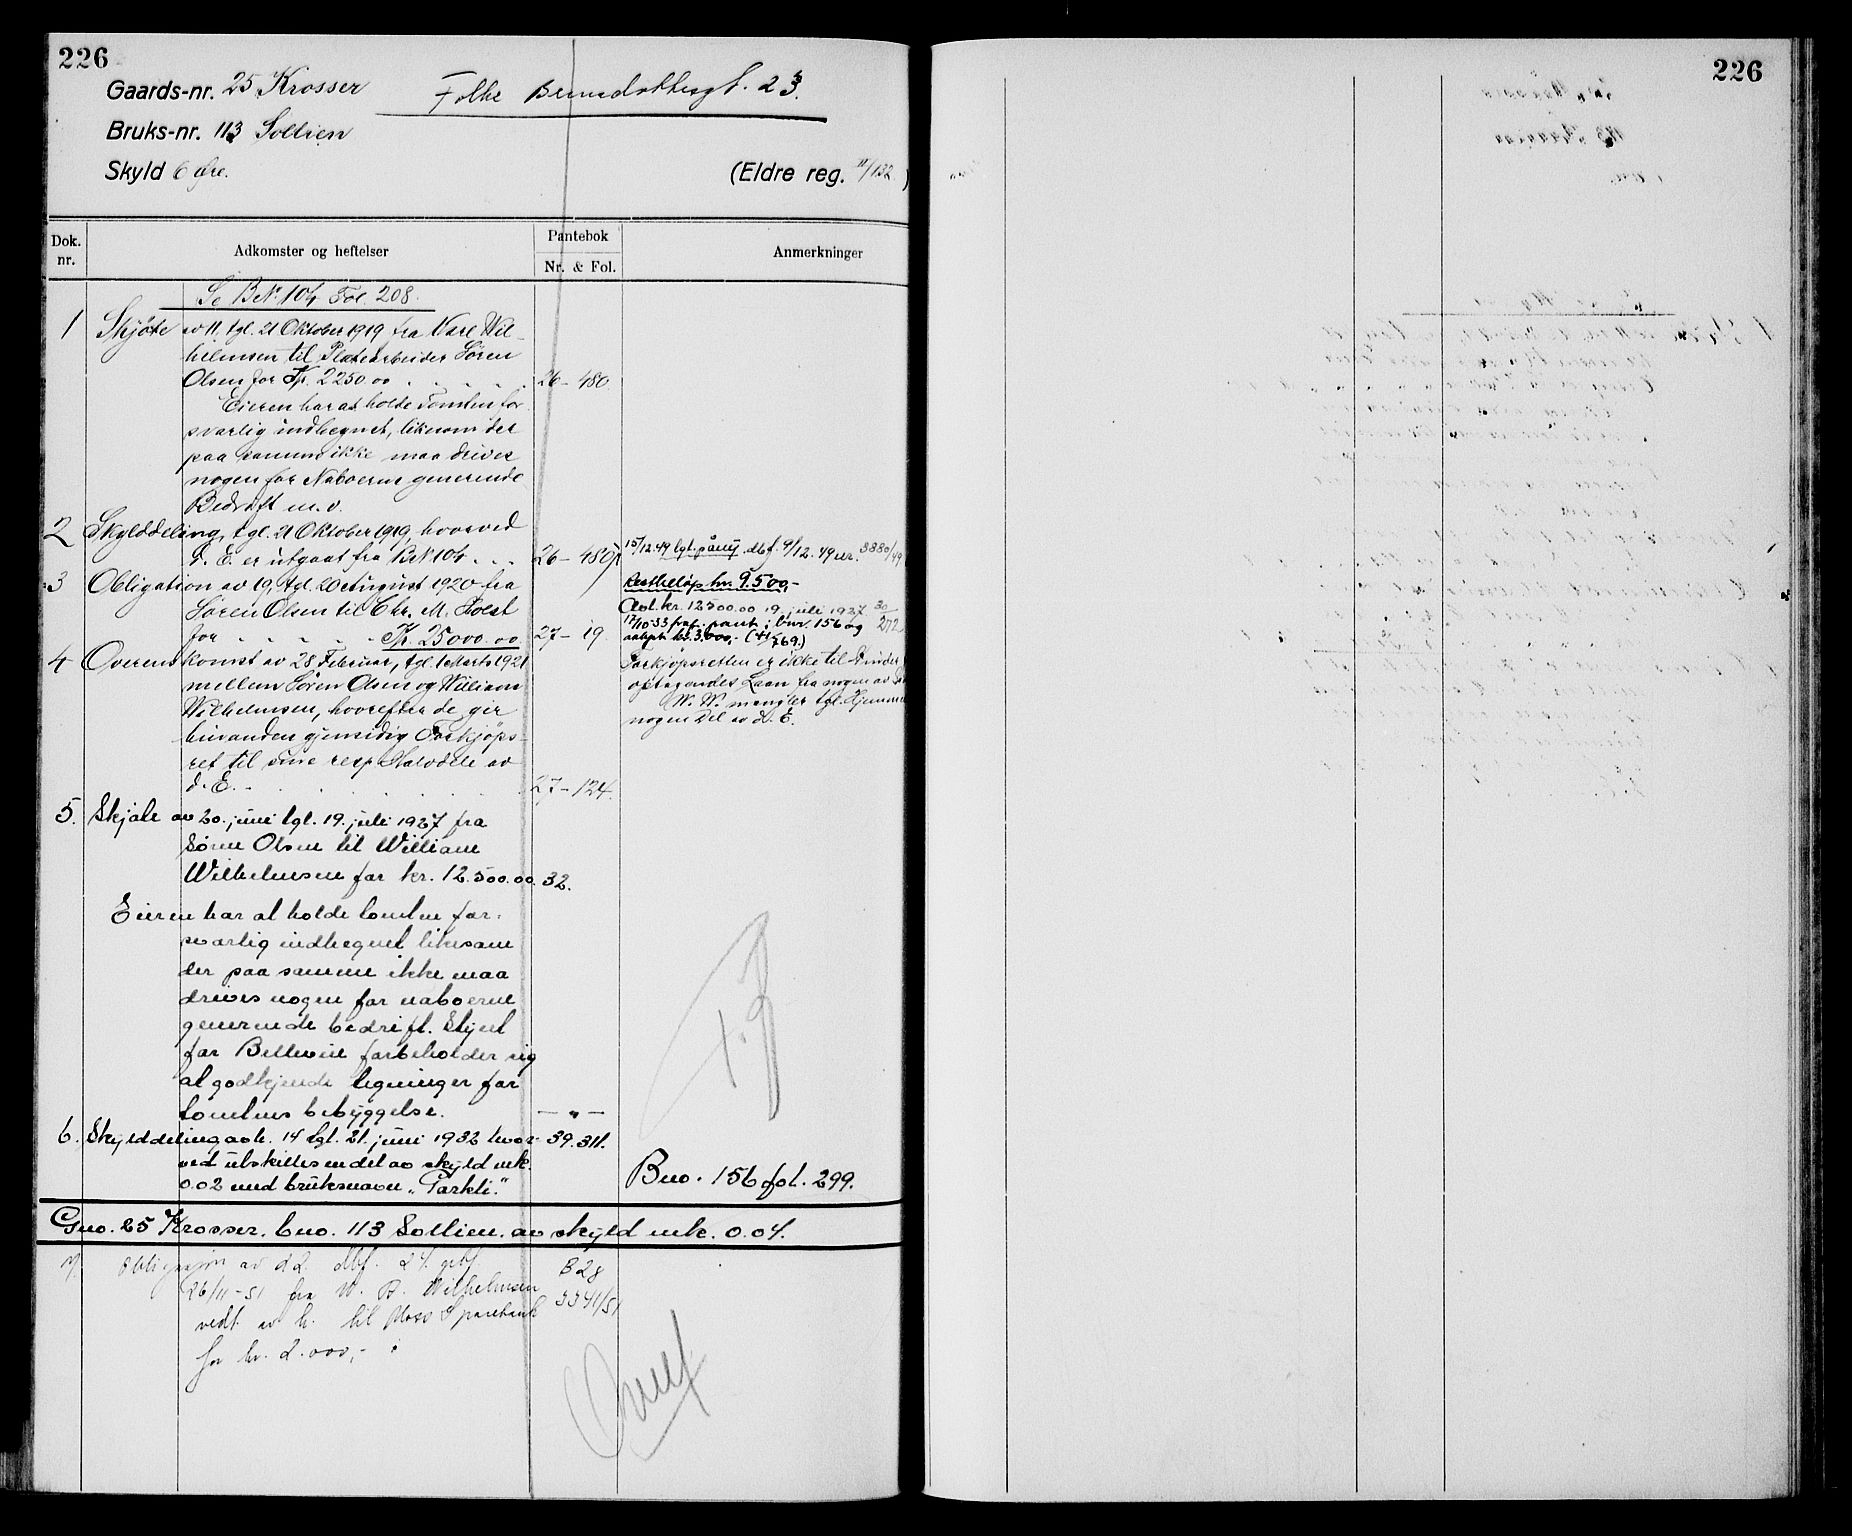 226
Gaards-nr. 25 Krosser
Folke Bernadottesgt. 23.
Bruks-nr. 113 Sollien
Skyld 6 Øre.
(Eldre reg. 11/132.)
Dok. nr.
Adkomster og heftelser
Pantebok
Nr. & Fol.
Anmerkninger
Se BNr. 104 Fol. 208.
1 Skjøte av 11, tgl. 21 Oktober 1919 fra Karl Wil-
helmsen til Platearbeider Søren
Olsen for Kr. 2250.00 . . . . . 26 - 480
Eieren har at holde Tomten for-
svarlig indhegnet, likesom der
paa samme ikke maa drives
nogen for Naboerne generende
Bedrift m. v.
2 Skylddeling, tgl. 21 Oktober 1919, hvorved
d. E. er utgaat fra BNr. 104 . . . 26 - 480
15/12.49 lyst på nytt dbf. 9/12.49 nr. 3880/49
3 Obligation av 19, tgl. 20 August 1920 fra
Søren Olsen til Chr. M. Foest
for . . . . . Kr. 25000.00 27 - 19.
Restbeløp kr. 9.500,-
Avl. kr. 12500.00 19. juli 1927 30/272
17/10-33 fraf. pant i bnr. 156 og
avbet. kr. 3.000,- (41/569)
4 Overenskomst av 28 Februar, tgl. 1 Marts 1921
mellem Søren Olsen og William
Wilhelmsen, hvorefter de gir
hinanden gjensidig Forkjøps-
ret til sine resp Halvdele av
d. E. . . . . . . 27 - 124.
Forkjøpsretten er ikke til Hinder
optagendes Laan fra nogen av
W. W. mangler tgl. Hjemmel
nogen Del av d. E.
5. Skjøte av 20. juni tgl. 19. juli 1927 fra
Søren Olsen til William
Wilhelmsen for kr. 12.500.00. 32.
Eieren har at holde tomten for-
svarlig indhegnet likesom
der paa samme ikke maa
drives nogen for naboerne
generende bedrift. Styret
for Bellevue forbeholder sig
at godkjende tegninger for
tomtens bebyggelse. — „ —
6. Skylddeling avh. 14 tgl. 21. juni 1932 hvor- 39. 311.
ved utskilles en del av skyld mk.
0.02 med bruksnavn „Parkli."
Bno. 156 fol. 299.
Gno. 25 Krosser. bno. 113 Sollien. av skyld mk. 0.04.
7. Obligasjon av d.d. dbf. 24.
26/11-51 fra W. B. Wilhelmsen
vedt. av h. til Moss Sparebank
for kr. 2.000,-
B 28
3341/51
226